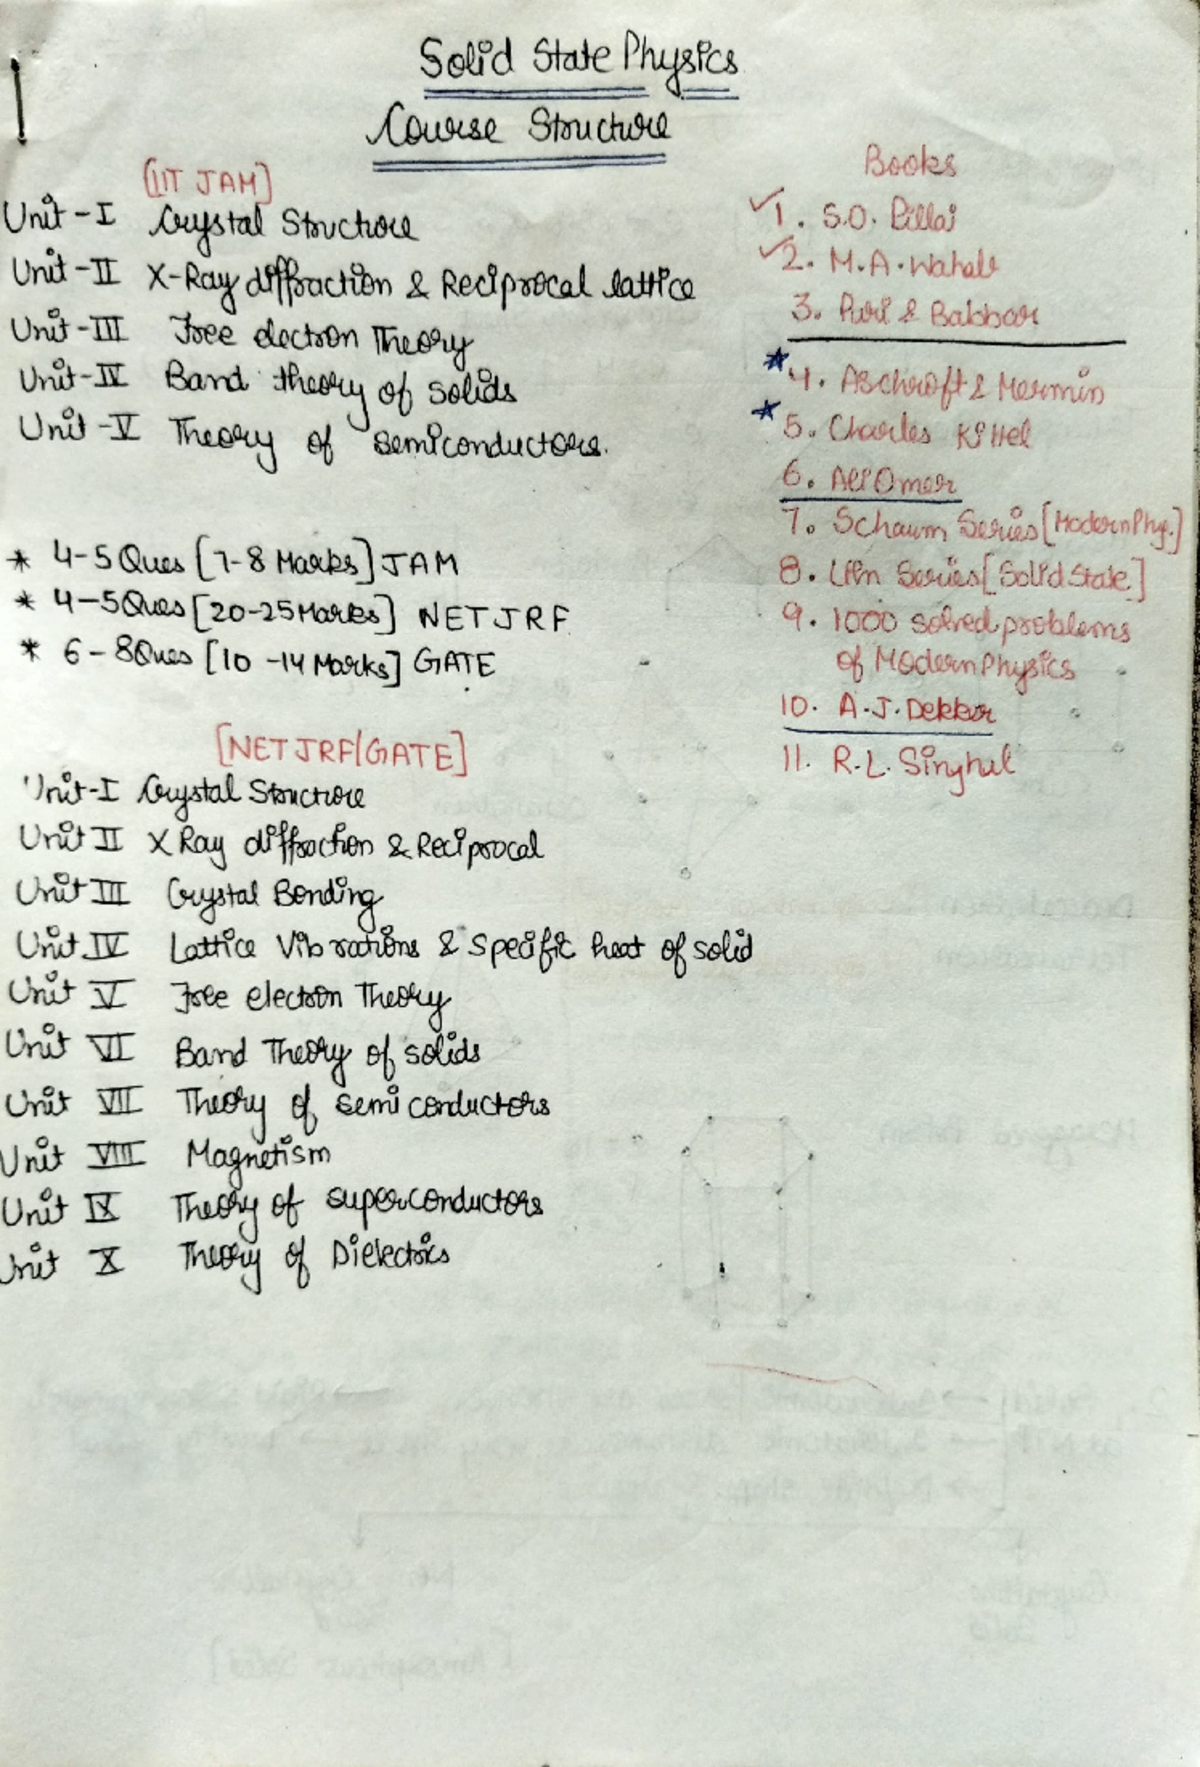 Solid State Physics
Course Structure
[IIT JAM]
Unit-I Crystal Structure
Unit-II X-Ray diffraction & Reciprocal lattice
Unit-III Free electron Theory
Unit-IV Band theory of solids
Unit-V Theory of semiconductors.
* 4-5 Ques [7-8 Marks] JAM
* 4-5 Ques [20-25 Marks] NET JRF
* 6-8 Ques [10-14 Marks] GATE
[NET JRF/GATE]
Unit-I Crystal Structure
Unit II X Ray diffraction & Reciprocal
Unit III Crystal Bonding
Unit IV Lattice Vibrations & Specific heat of solid
Unit V Free electron Theory
Unit VI Band Theory of solids
Unit VII Theory of semiconductors
Unit VIII Magnetism
Unit IX Theory of superconductors
Unit X Theory of Dielectrics
Books
✓1. S.O. Pillai
✓2. M.A. Wahab
3. Puri & Babbar
★4. Aschroft & Mermin
★5. Charles Kittel
6. Ali Omer
7. Schaum Series [Modern Phy.]
8. Series [Solid State.]
9. 1000 solved problems
of Modern Physics
10. A.J. Dekker
11. R.L. Singhal